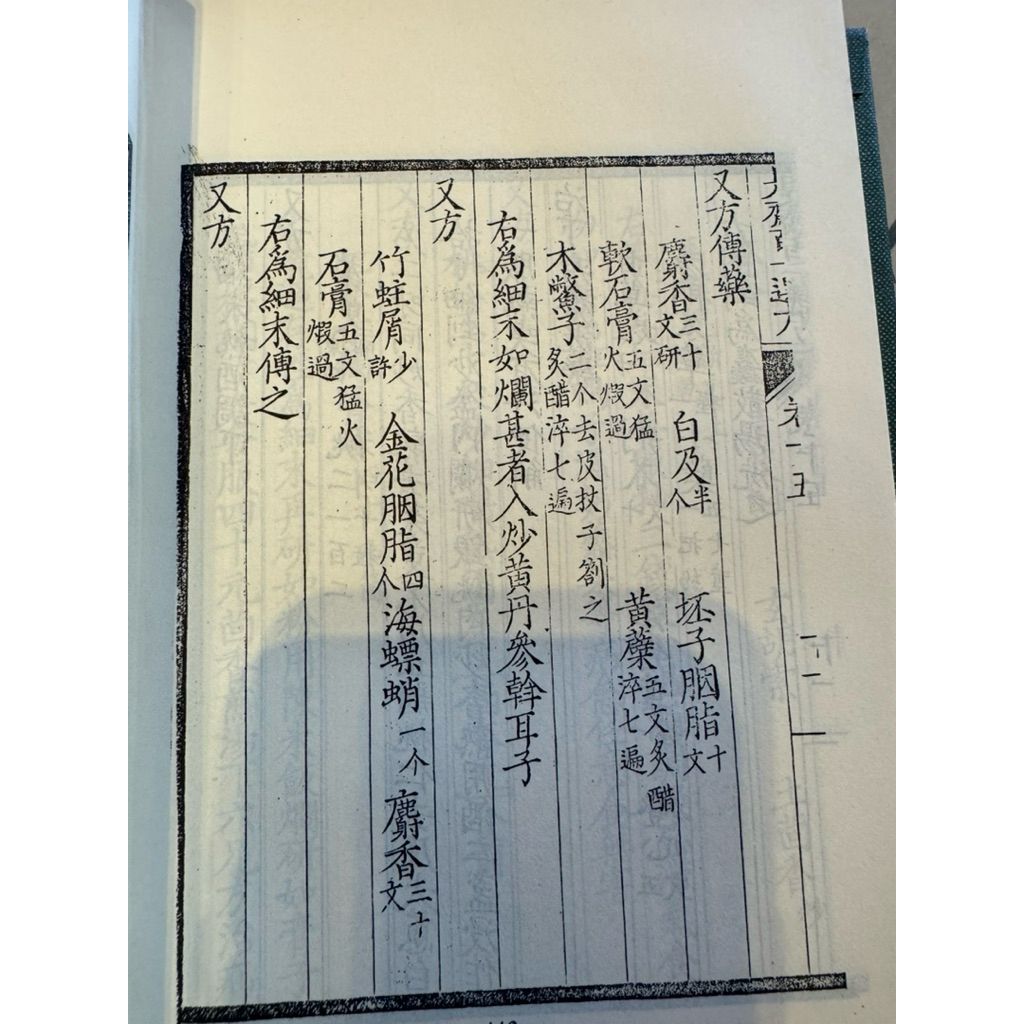 是齋百一選方 卷十五
又方傅藥
麝香三十文研 白及半个 坯子胭脂十文
軟石膏五文猛火煆過 黃蘗五文炙醋淬七遍
木鱉子二个去皮扙子劄之炙醋淬七遍
右爲細末如爛甚者入炒黃丹參幹耳子
又方
竹蛀屑少許 金花胭脂四个海螵蛸一个 麝香三十文
石膏五文猛火煆過
右爲細末傅之
又方